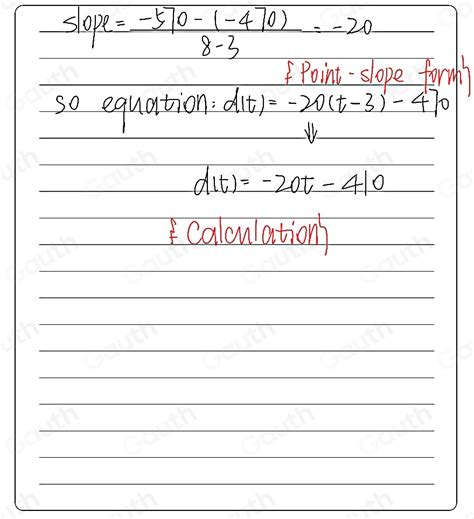 slope = -570-(-470) / 8-3 = -20
{ Point-slope form }
so equation: d(t) = -20(t-3) - 470
⇓
d(t) = -20t - 410
{ Calculation }